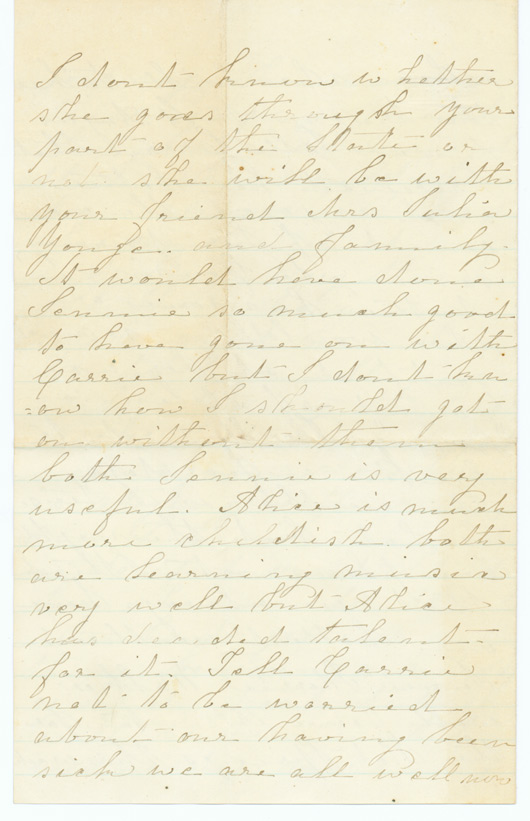 I dont know whether
she goes through your
part of the State or
not. she will be with
your friend Mrs Julia
Yonge. and family.
It would have done
Jennie so much good
to have gone on with
Carrie but I dont kn
=ow how I should get
on without them
both Jennie is very
useful. Alice is much
more childish. both
are learning music
very well but Alice
has decided talent
for it. Tell Carrie
not to be worried
about our having been
sick we are all well now